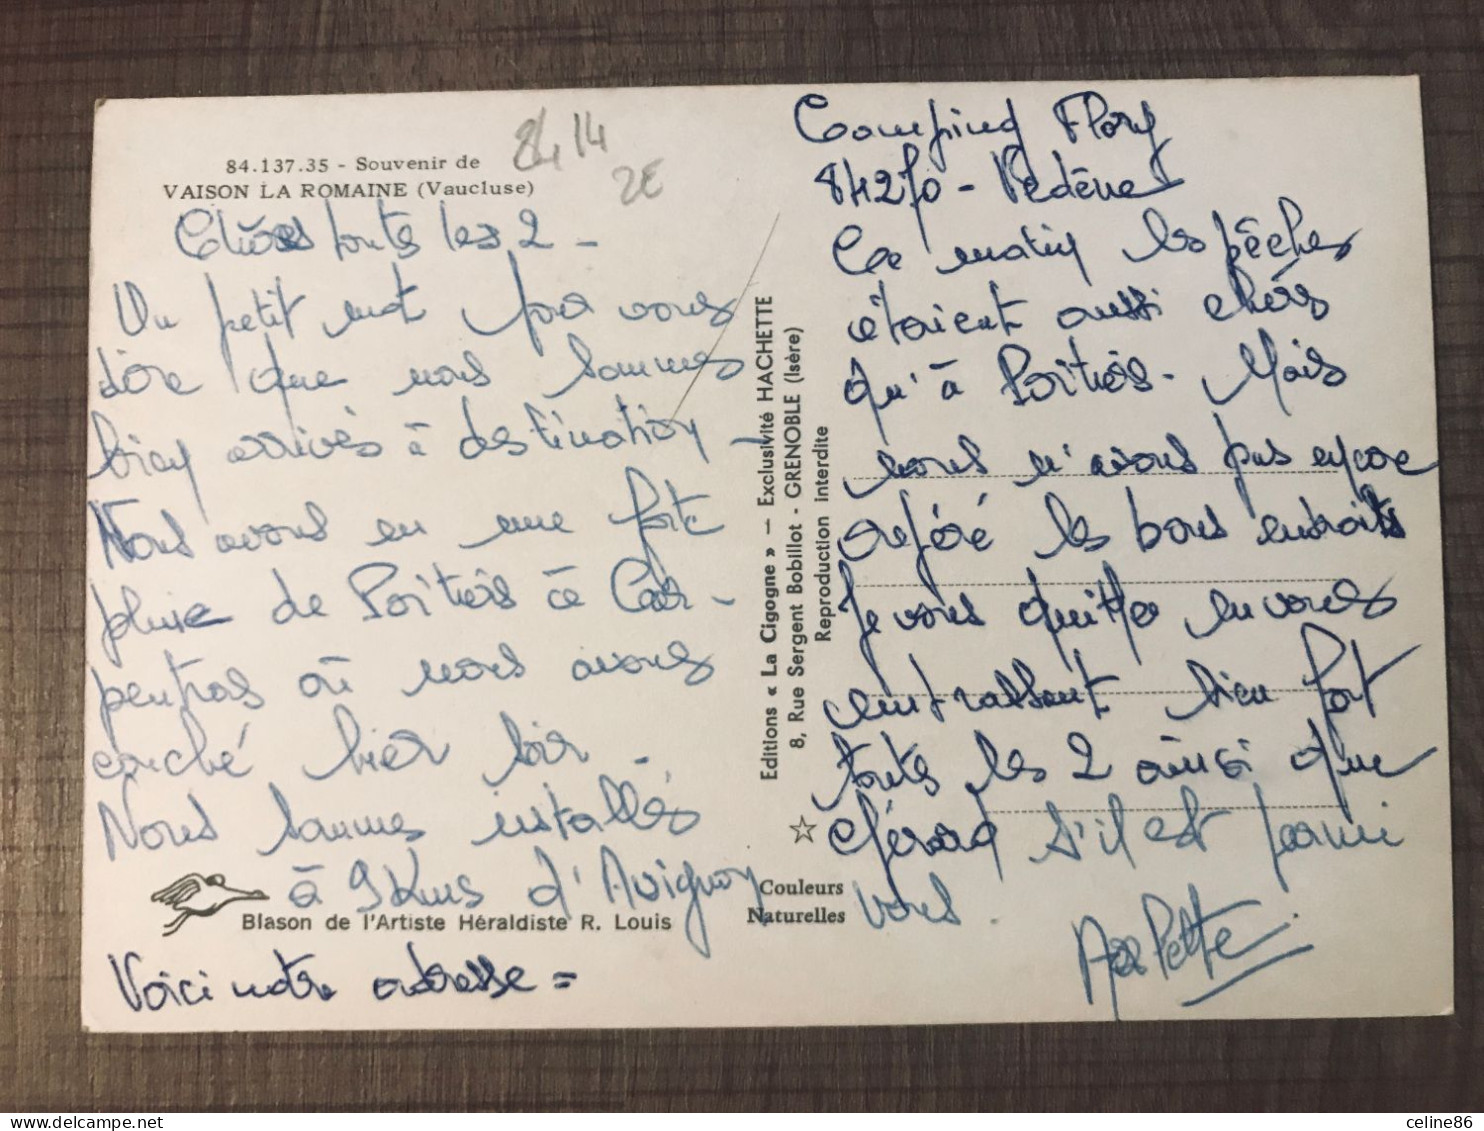 84.137.35 - Souvenir de
VAISON LA ROMAINE (Vaucluse)
84 14
2E
Chères toutes les 2 -
Un petit mot pour vous
dire que nous sommes
bien arrivés à destination -
Nous avons eu une forte
pluie de Poitiers à Car-
pentras où nous avons
couché hier soir -
Nous sommes installés
à 9 Kms d'Avignon
Blason de l'Artiste Héraldiste R. Louis
Voici notre adresse =
Editions « La Cigogne » — Exclusivité HACHETTE
8, Rue Sergent Bobillot - GRENOBLE (Isère)
Reproduction interdite
Couleurs
Naturelles
Camping Flory
84270 - Vedène
Ce matin les pêches
étaient aussi chères
qu'à Poitiers - Mais
nous n'avons pas encore
repéré les bons endroits
Je vous quitte en vous
embrassant bien fort
toutes les 2 ainsi que
Gérard s'il est parmi
vous.
celine86